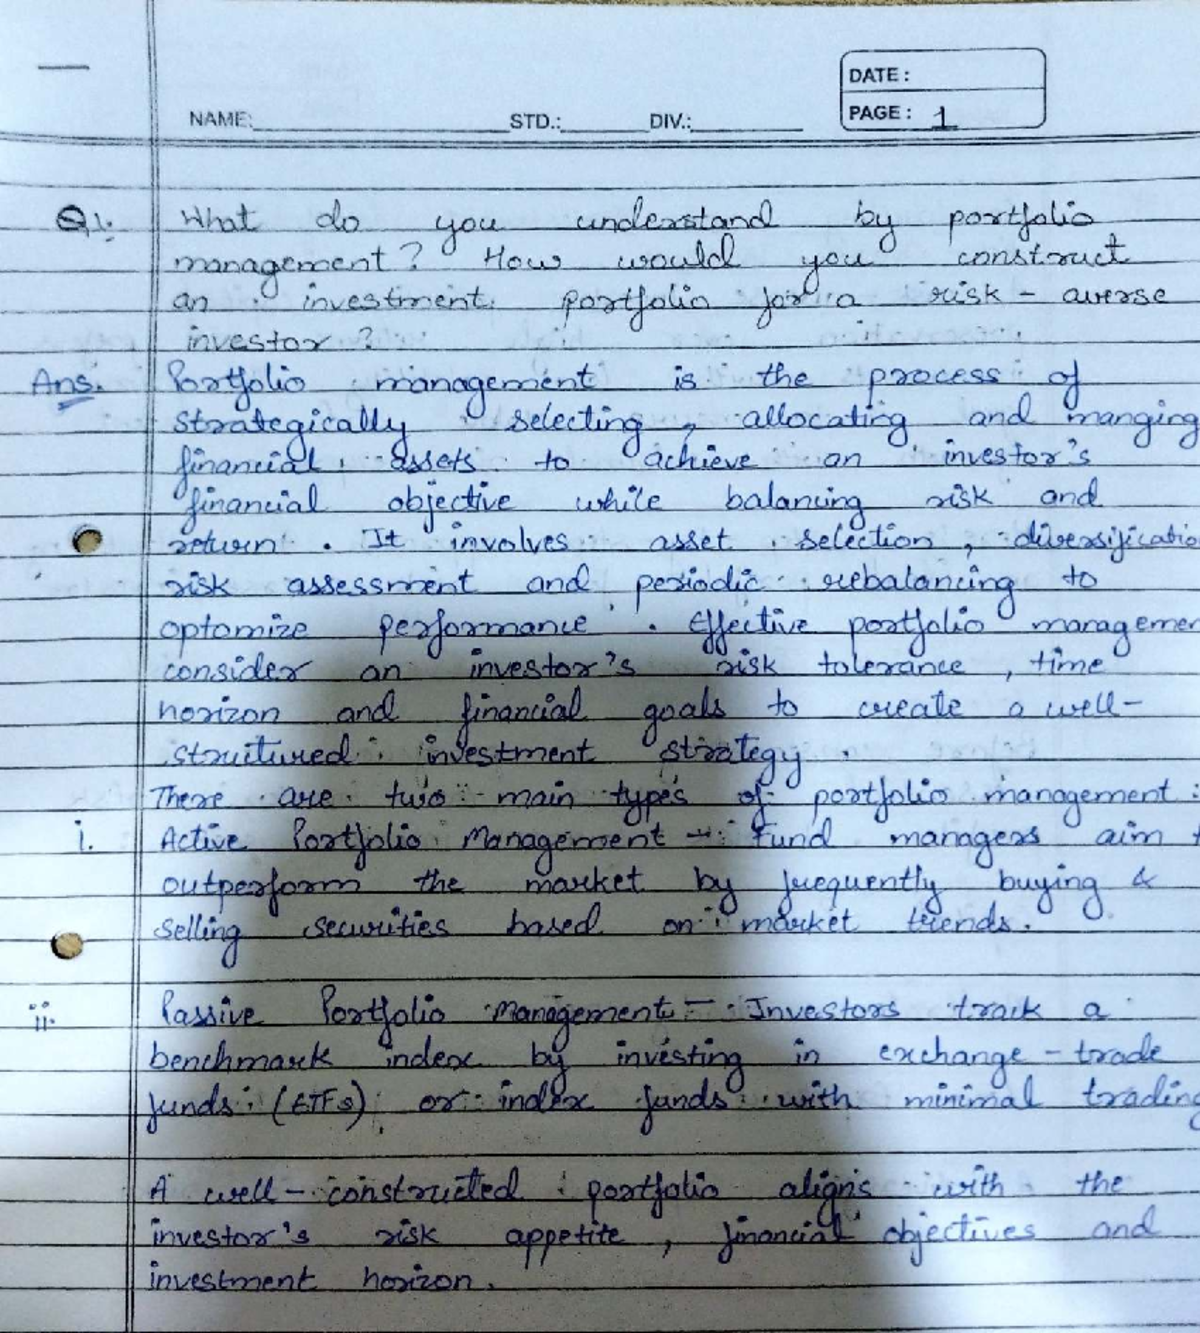 DATE :
PAGE : 1
NAME: STD.: DIV.:
Q1. What do you understand by portfolio
management? How would you construct
an investment portfolio for a risk - averse
investor ?
Ans. Portfolio management is the process of
strategically selecting, allocating and manging
financial assets to achieve an investor's
financial objective while balancing risk and
return. It involves asset selection, diversificatio
risk assessment and periodic rebalancing to
optomize performance. Effective portfolio managemen
consider an investor's risk tolerance, time
horizon and financial goals to create a well-
struitured investment strategy.
There are two main types of portfolio management :
i. Active Portfolio Management - Fund managers aim t
outperform the market by frequently buying &
selling securities based on market trends.
ii. Passive Portfolio Management - Investors track a
benchmark index by investing in exchange - trade
funds (ETFs) or index funds with minimal trading
A well - constructed portfolio aligns with the
investor's risk appetite, financial objectives and
investment horizon.